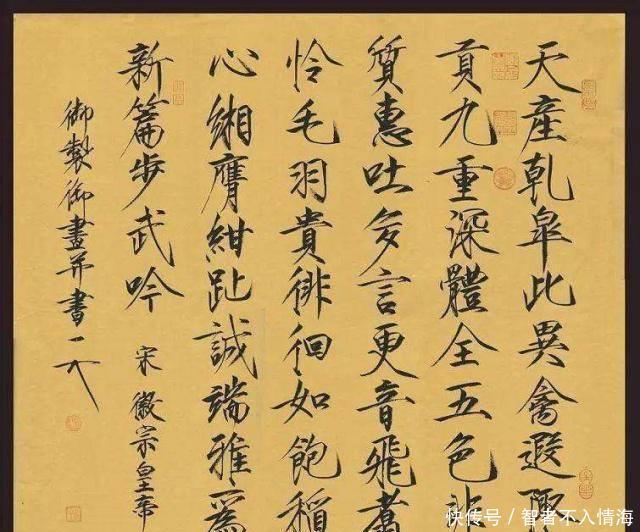 天產乹皐此異禽遐陬
貢九重深體全五色非
質惠吐多言更音飛翥
怜毛羽貴徘徊如飽稻
心緗膺紺趾誠端雅爲
新篇步武吟
宋徽宗皇帝
御製御畫并書
快传号 / 智者不入情海